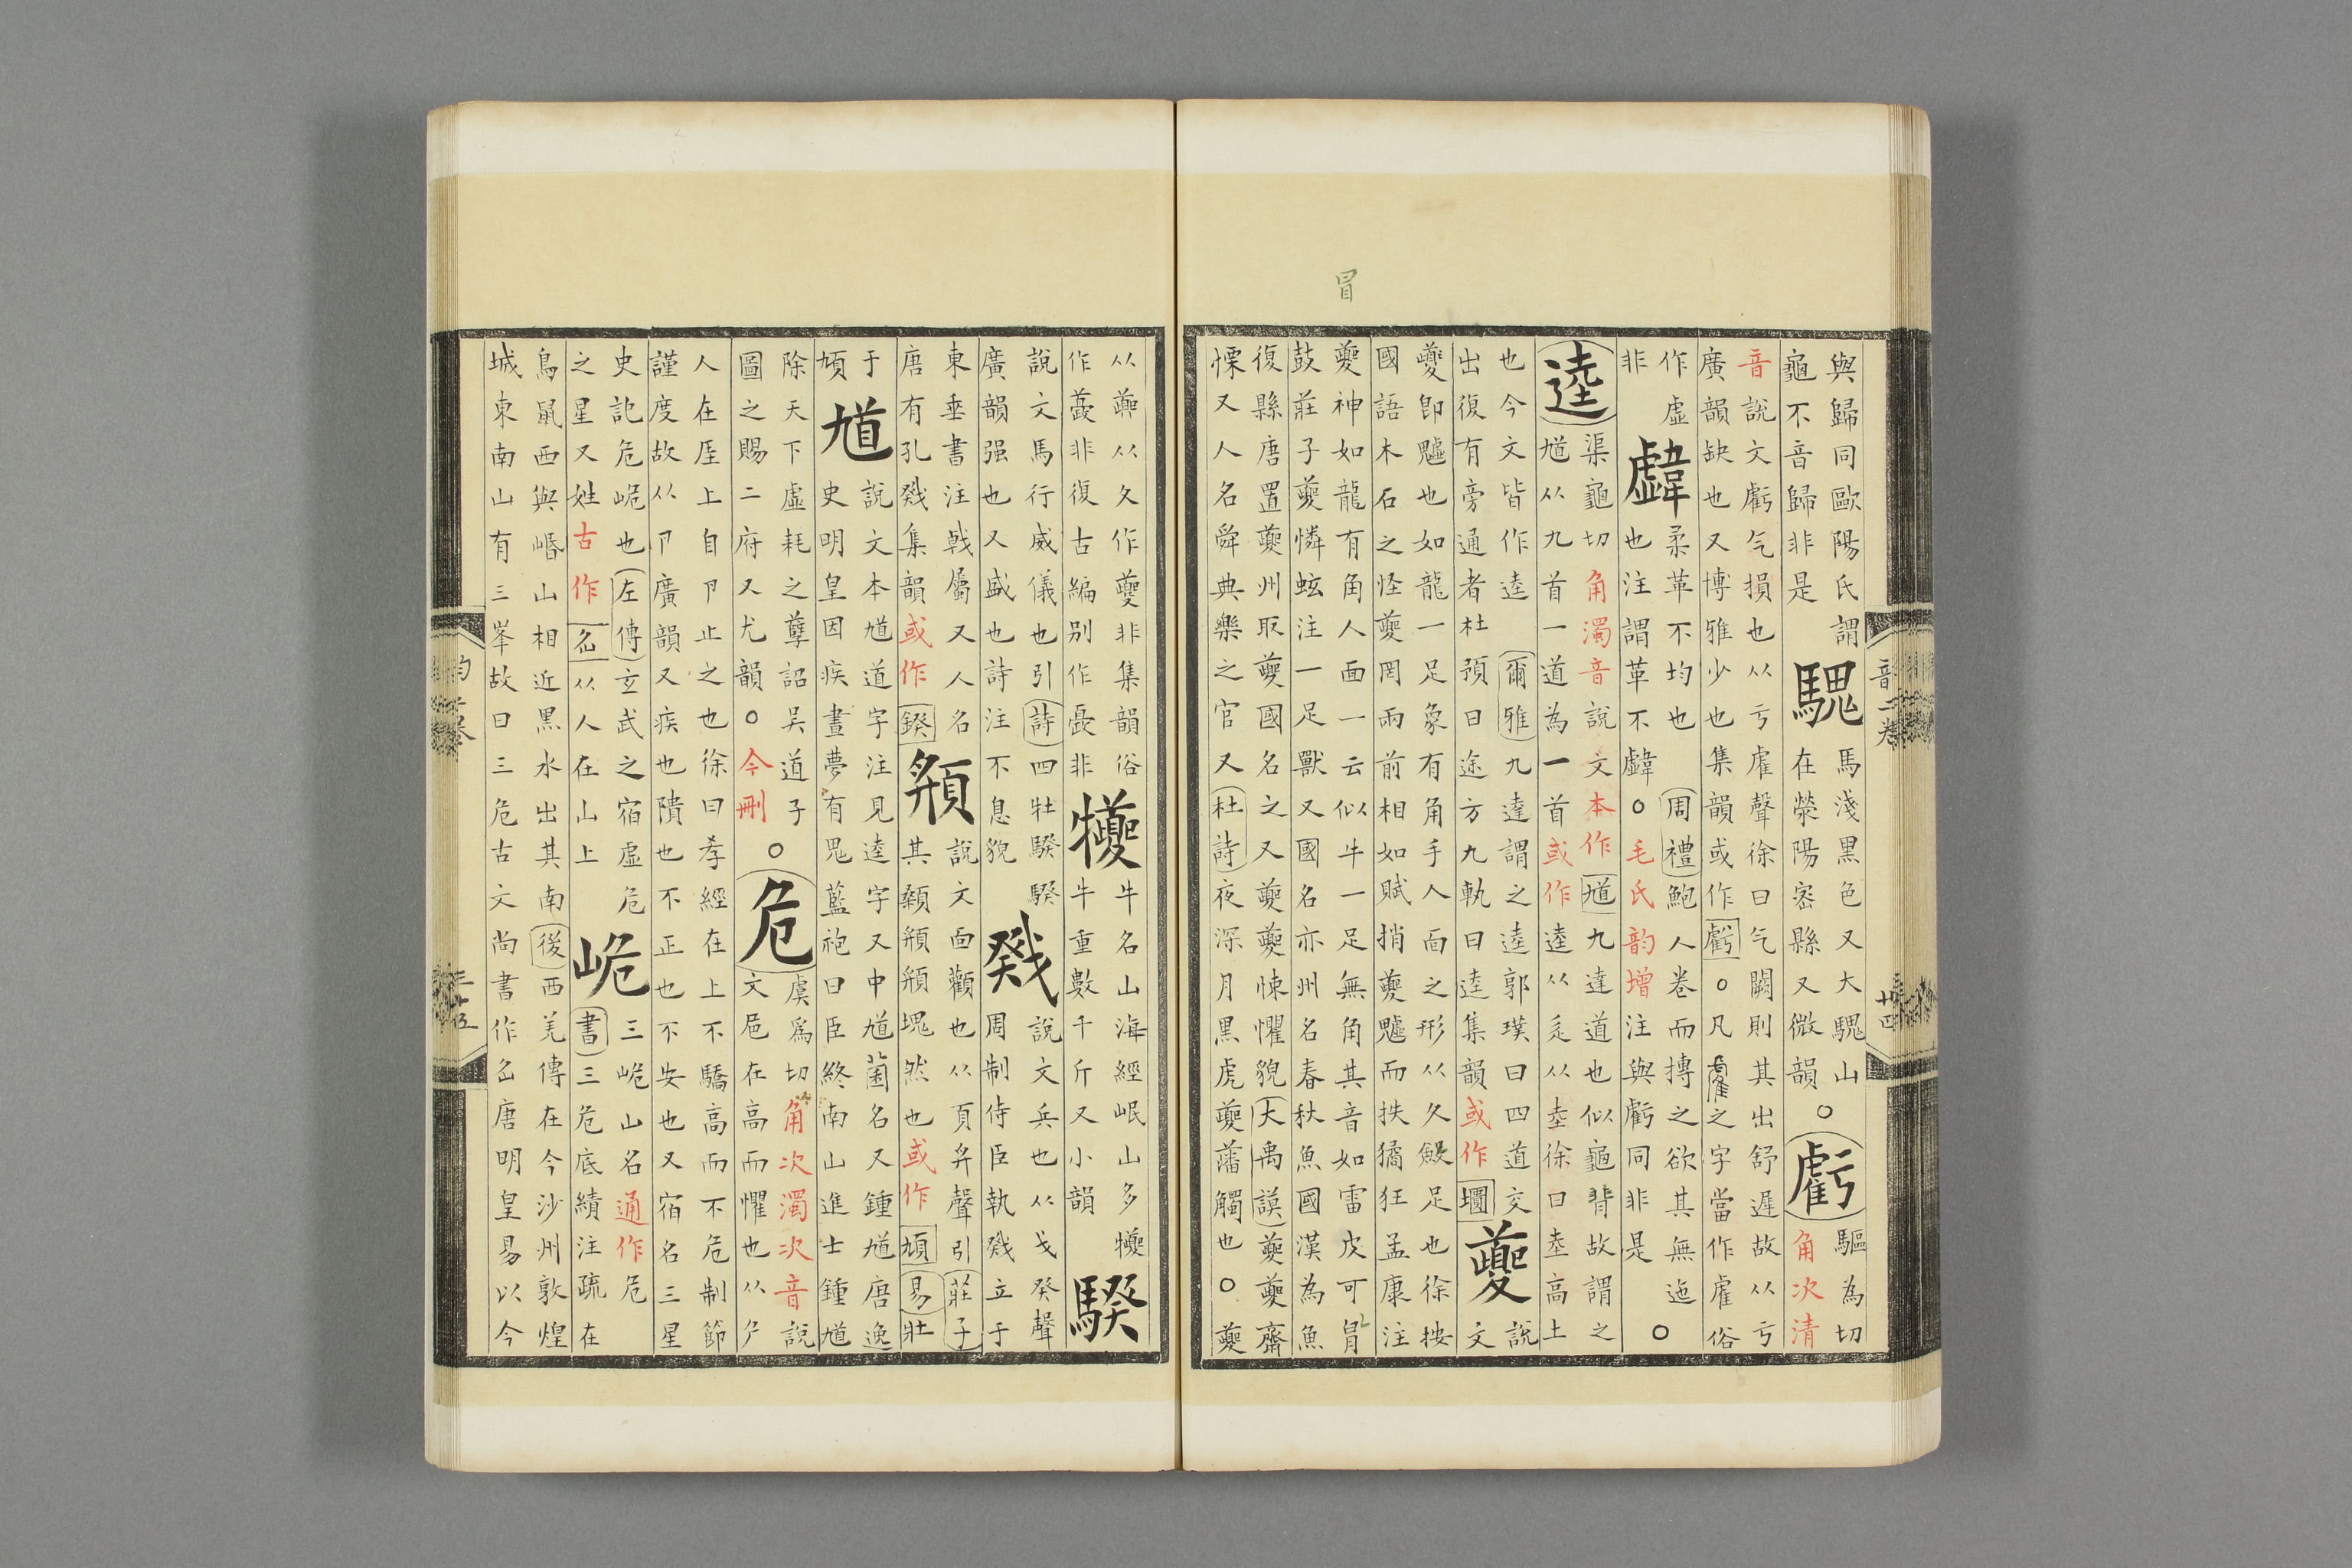 與歸同歐陽氏謂
龜不音歸非是
騩
馬淺黑色又大騩山
在滎陽密縣又微韻
○
虧
驅為切
角次清
音說文虧气損也从亏雐聲徐曰气闕則其出舒遲故从亏
廣韻缺也又博雅少也集韻或作虧○凡雐之字當作雐俗
作虛
非
䖜
柔革不均也周禮鮑人卷而摶之欲其無迆
也注謂革不○毛氏韵增注與虧同非是
○
逵
渠龜切角濁音說文本作馗九達道也似龜背故謂之
馗从九首一道為一首或作逵从辵从坴徐曰坴高土
也今文皆作逵爾雅九達謂之逵郭璞曰四道交
出復有旁通者杜預曰途方九軌曰逵集韻或作
夔
說
文
夔卽魖也如龍一足象有角手人面之形从夂足也徐按
國語木石之怪夔罔兩前相如賦捎夔魖而抶獝狂孟康注
夔神如龍有角人面一云似牛一足無角其音如雷皮可冐
鼓莊子夔憐蚿注一足獸又國名亦州名春秋魚國漢為魚
復縣唐置夔州取夔國名之又夔夔悚懼貌大禹謨夔夔齋
慄又人名舜典樂之官又杜詩夜深月黑虎夔藩觸也○夔
冒
音二卷
廿四
从从夂作夔非集韻俗
作非復古編別作憂非
犪
牛名山海經岷山多犪
牛重數千斤又小韻
騤
說文馬行威儀也引詩四牡騤騤
廣韻强也又盛也詩注不息貌
戣
說文兵也从戈癸聲
周制侍臣執戣立于
東垂書注戟屬又人名
唐有孔戣集韻或作鍨
頯
說文面顴也从頁弁聲引莊子
其顙頯頯塊然也或作頄易壯
于
頄
馗
說文本馗道字注見逵字又中馗菌名又鍾馗唐逸
史明皇因疾晝夢有鬼藍袍曰臣終南山進士鍾馗
除天下虛耗之孽詔吳道子
圖之賜二府又尤韻○今刪
○
危
虞爲切角次濁次音說
文危在高而懼也从厃
人在厓上自卩止之也徐曰孝經在上不驕高而不危制節
謹度故从卩廣韻又疾也隤也不正也不安也又宿名三星
史記危峗也左傳玄武之宿虛危
之星又姓古作𠨘从人在山上
峗
三峗山名通作危
書三危底績注疏在
鳥鼠西與嶓山相近黑水出其南後西羌傳在今沙州敦煌
城東南山有三峯故曰三危古文尚書作𠨘唐明皇易以今
韵二卷
廿五